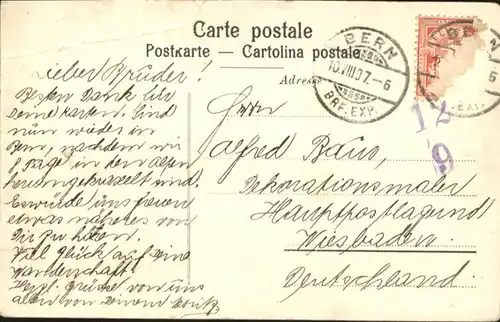 Carte postale
Postkarte – Cartolina postale
Adresse
BERN
10.VIII.07.–6
BRF. EXP.
12
9
Lieber Bruder!
Besten Dank für
Deine Karten. Sind
nun wieder in
Bern, nachdem wir
8 Tage in den Alpen
herumgekraxelt sind.
Es würde uns freuen
etwas näheres von
Dir zu hören.
Viel Glück auf Deine
Herzl. Grüsse von uns
allen von Deinem Moritz
Herrn
Alfred Baus,
Dekorationsmaler
Hauptpostlagernd
Wiesbaden.
Deutschland.